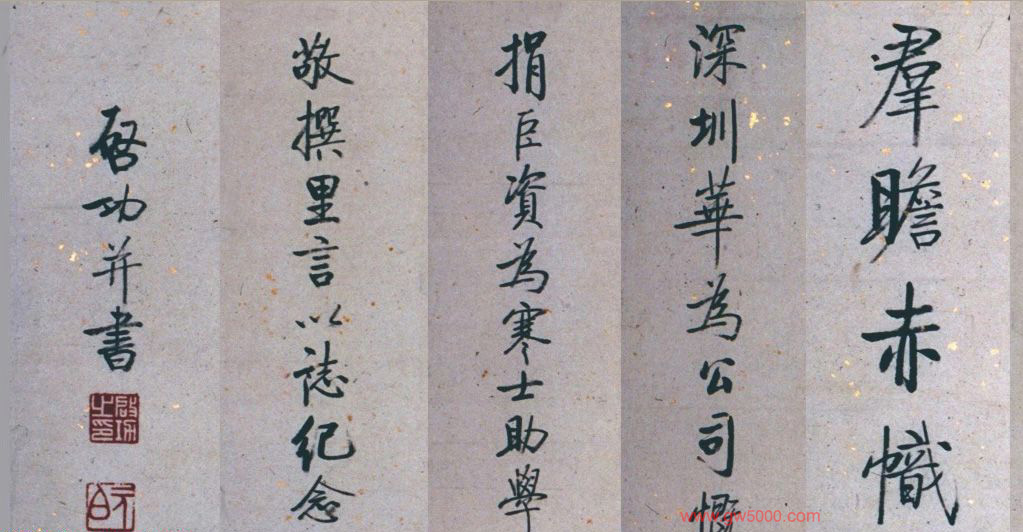 羣瞻赤幟
深圳華為公司慷
捐巨資為寒士助學
敬撰里言以誌紀念
啓功并書
啟功之印
www.gw5000.com